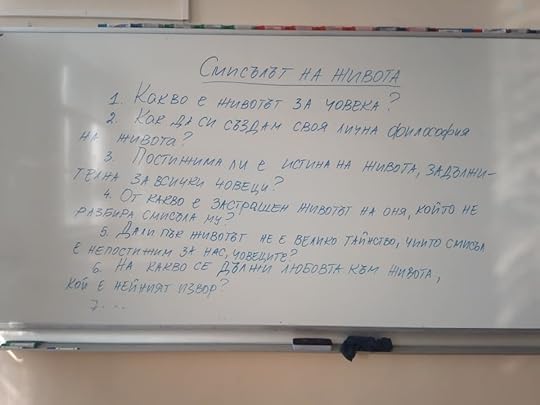 СМИСЪЛЪТ НА ЖИВОТА
1. КАКВО Е ЖИВОТЪТ ЗА ЧОВЕКА?
2. КАК ДА СИ СЪЗДАМ СВОЯ ЛИЧНА ФИЛОСОФИЯ
НА ЖИВОТА?
3. ПОСТИЖИМА ЛИ Е ИСТИНА НА ЖИВОТА, ЗАДЪЛЖИ-
ТЕЛНА ЗА ВСИЧКИ ЧОВЕЦИ?
4. ОТ КАКВО Е ЗАСТРАШЕН ЖИВОТЪТ НА ОНЯ, КОЙТО НЕ
РАЗБИРА СМИСЪЛА МУ?
5. ДАЛИ ПЪК ЖИВОТЪТ НЕ Е ВЕЛИКО ТАЙНСТВО, ЧИЙТО СМИСЪЛ
Е НЕПОСТИЖИМ ЗА НАС, ЧОВЕЦИТЕ?
6. НА КАКВО СЕ ДЪЛЖИ ЛЮБОВТА КЪМ ЖИВОТА,
КОЙ Е НЕЙНИЯТ ИЗВОР?
7. ...